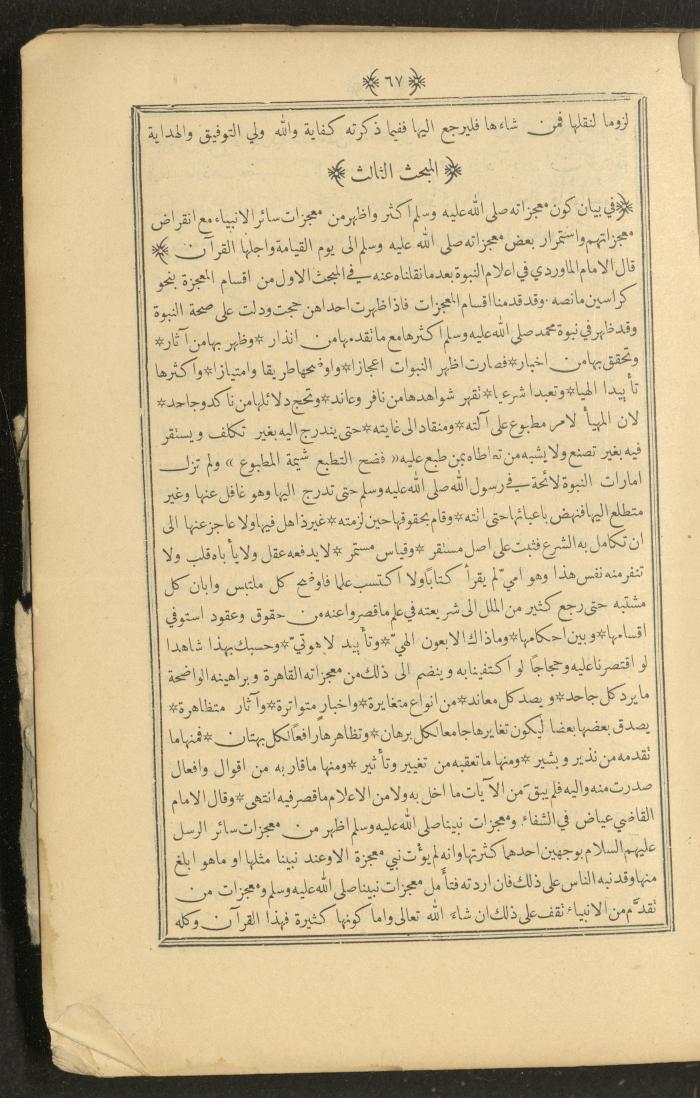 ﴿ ٦٧ ﴾
لزوما لنقلها فمن شاءها فليرجع اليها ففيما ذكرته كفاية والله ولي التوفيق والهداية
﴿ المبحث الثالث ﴾
﴿ في بيان كون معجزاته صلى الله عليه وسلم اكثر واظهر من معجزات سائر الانبياء مع انقراض
معجزاتهم واستمرار بعض معجزاته صلى الله عليه وسلم الى يوم القيامة واجلها القرآن ﴾
قال الامام الماوردي في اعلام النبوة بعد ما نقلناه عنه في المبحث الاول من اقسام المعجزة بنحو
كراسين ما نصه . وقد قدمنا اقسام المعجزات فاذا ظهرت احداهن حجت ودلت على صحة النبوة
وقد ظهر في نبوة محمد صلى الله عليه وسلم اكثرها مع ما تقدمها من انذار * وظهر بها من آثار *
وتحقق بها من اخبار * فصارت اظهر النبوات اعجازا * واوضحها طريقا وامتيازا * واكثرها
تأييدا الهيا * وتعبدا شرعيا * تقهر شواهدها من نافر وعاند * وتحج دلائلها من ناكد وجاحد *
لان المهيأ لامر مطبوع على آلته * ومنقاد الى غايته * حتى يندرج اليه بغير تكلف ويستقر
فيه بغير تصنع ولا يشبه من تعاطاه بمن طبع عليه « فضح التطبع شيمة المطبوع » ولم تزل
امارات النبوة لائحة في رسول الله صلى الله عليه وسلم حتى تدرج اليها وهو غافل عنها وغير
متطلع اليها فنهض باعبائها حتى اتته * وقام بحقوقها حين لزمته * غير ذاهل فيها ولا عاجز عنها الى
ان تكامل به الشرع فثبت على اصل مستقر * وقياس مستمر * لا يدفعه عقل ولا يأباه قلب ولا
تنفر منه نفس هذا وهو امي ّلم يقرأ كتابًا ولا اكتسب علما فاوضح كل ملتبس وابان كل
مشتبه حتى رجع كثير من الملل الى شريعته في علم ما قصروا عنه من حقوق وعقود استوفي
اقسامها * وبين احكامها * وما ذاك الا بعون الهي ّ* وتأييد لاهوتي ّ* وحسبك بهذا شاهدا
لو اقتصرنا عليه وحجاجًا لو اكتفينا به وينضم الى ذلك من معجزاته القاهرة وبراهينه الواضحة
ما يرد كل جاحد * و يصد كل معاند * من انواع متغايرة * واخبار متواترة * وآثار متظاهرة *
يصدق بعضها بعضا ليكون تغايرها جامعا لكل برهان * وتظاهرها رافعا لكل بهتان * فمنها ما
تقدمه من نذير و بشير * ومنها ما تعقبه من تغيير وتأثير * ومنها ما قارنه من اقوال وافعال
صدرت منه واليه فلم يبق َمن الآيات ما اخل به ولا من الاعلام ما قصر فيه انتهى * وقال الامام
القاضي عياض في الشفاء ومعجزات نبينا صلى الله عليه وسلم اظهر من معجزات سائر الرسل
عليهم السلام بوجهين احدهما كثرتها وانه لم يؤت نبي معجزة الا وعند نبينا مثلها او ما هو ابلغ
منها وقد نبه الناس على ذلك فان اردته فتأمل معجزات نبينا صلى الله عليه وسلم ومعجزات من
تقدَّم من الانبياء تقف على ذلك ان شاء الله تعالى واما كونها كثيرة فهذا القرآن وكله